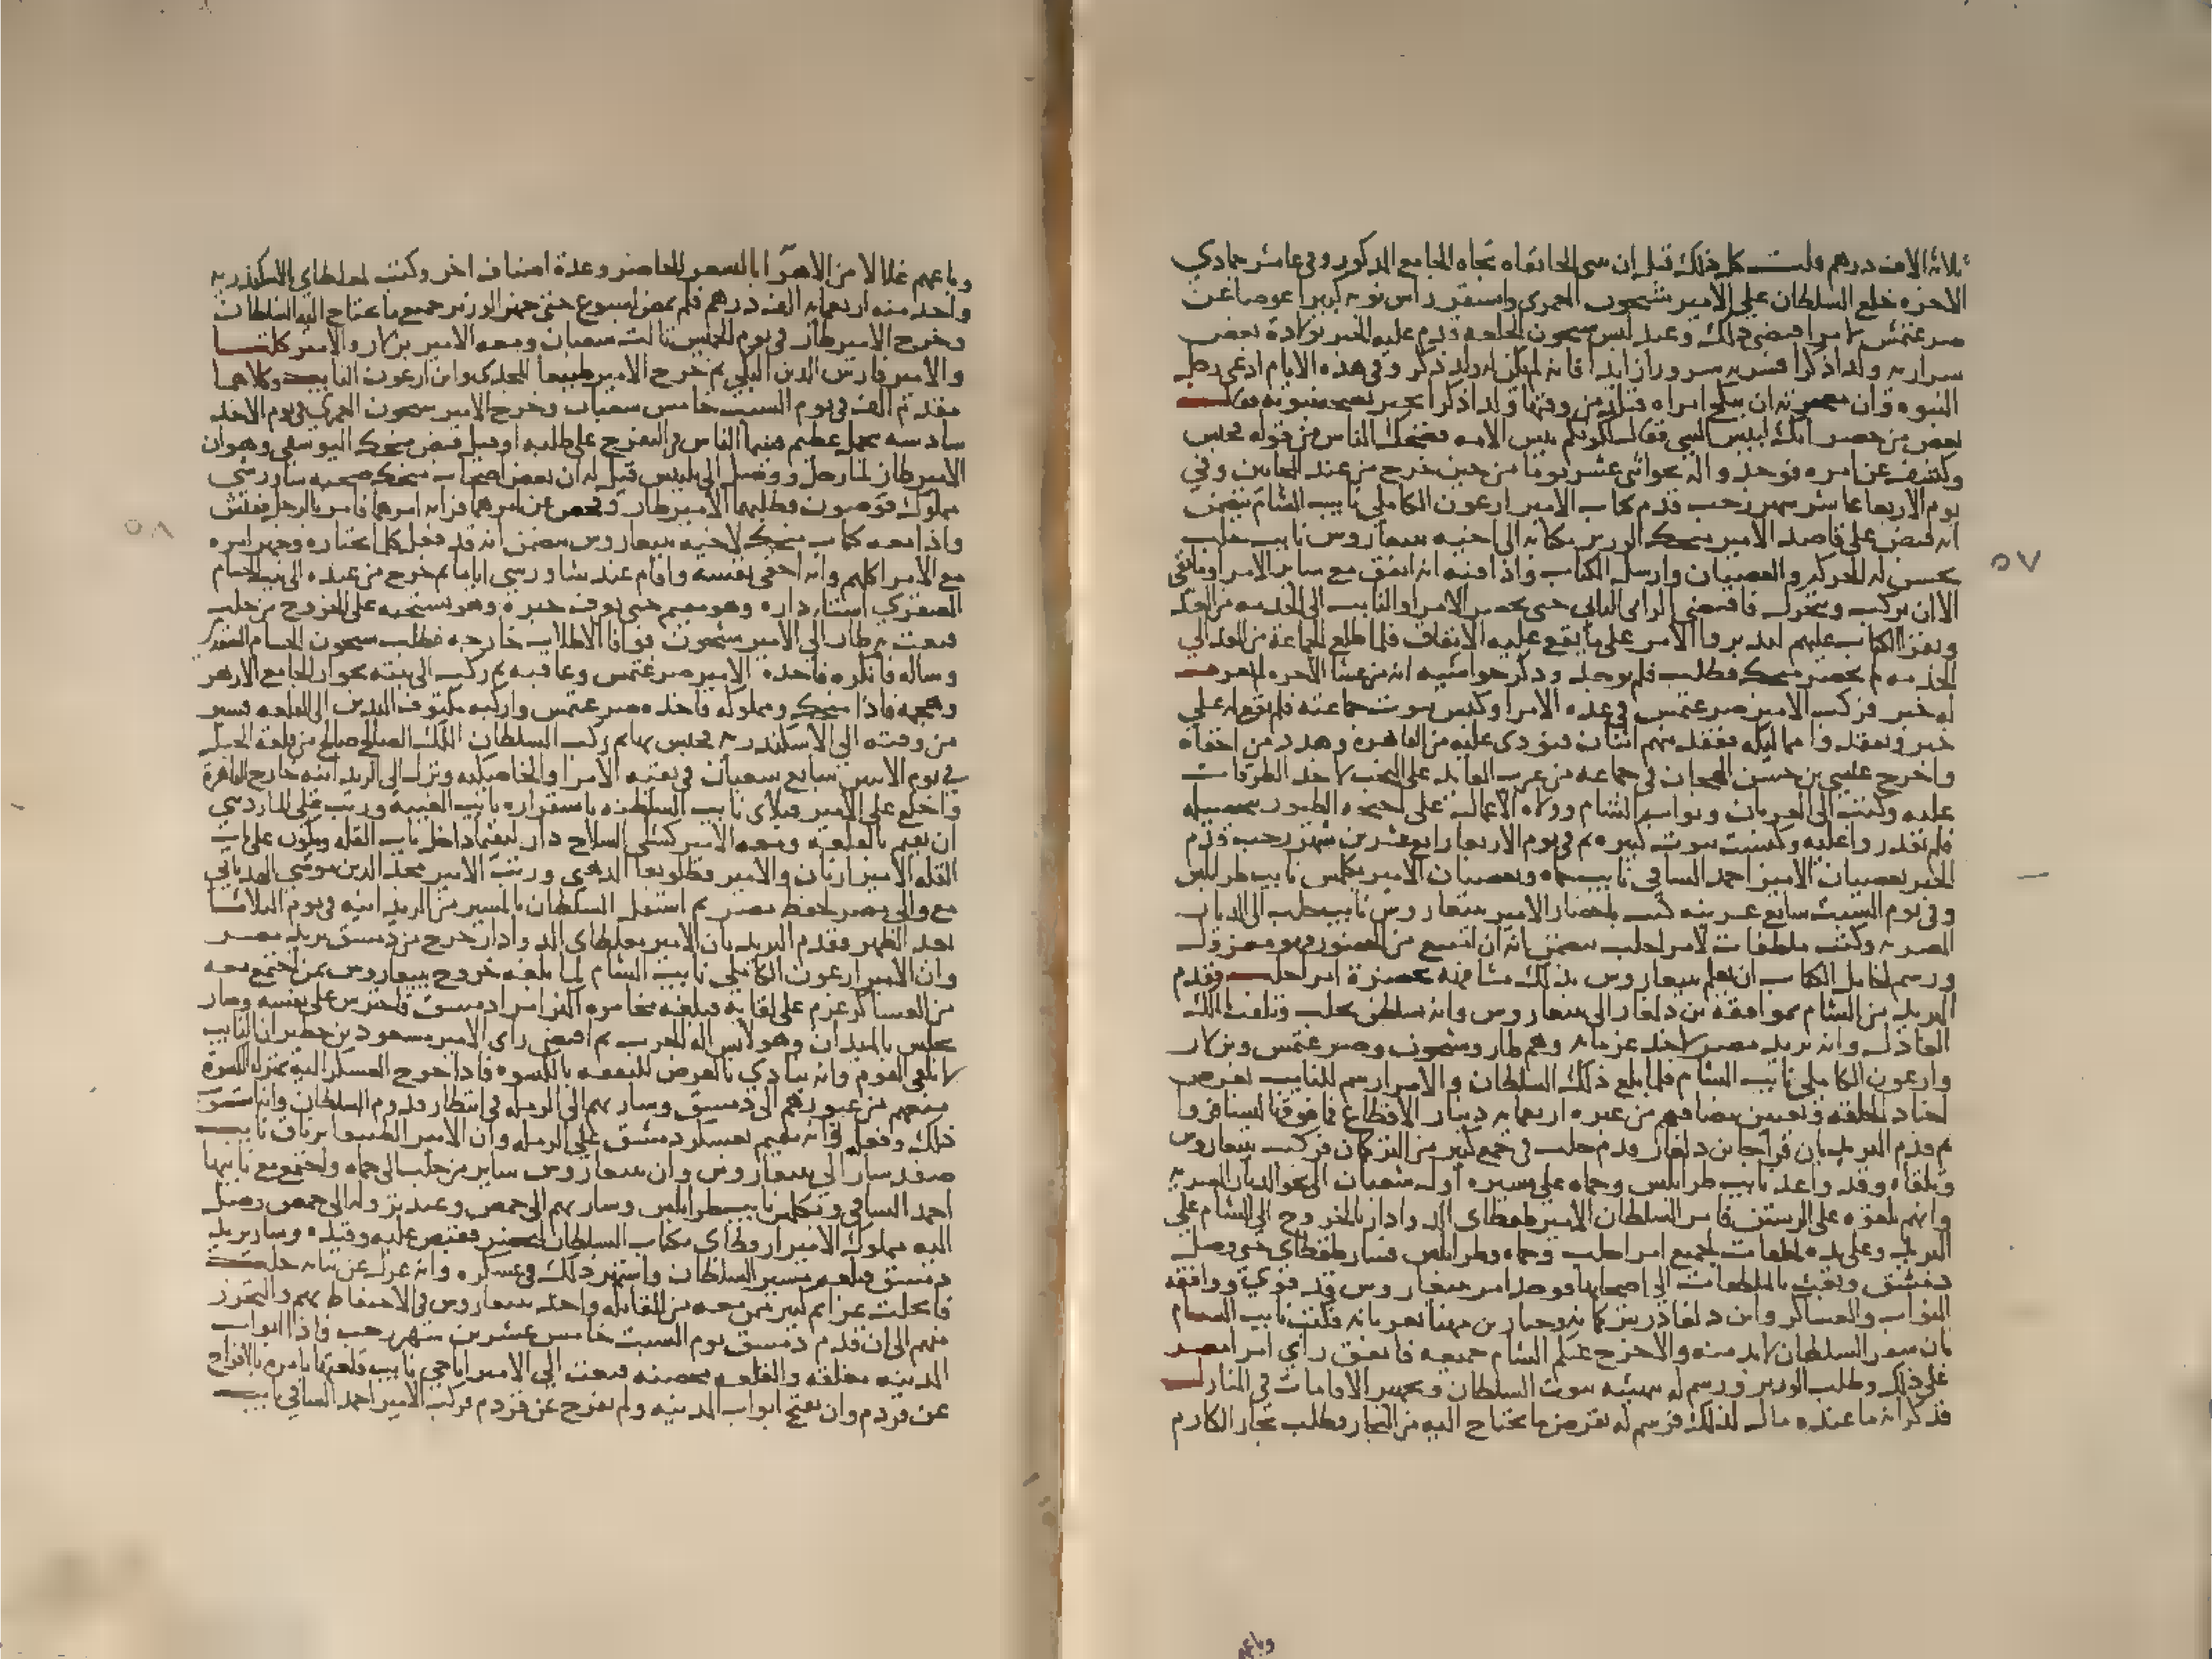 ثلاثة الاف درهم قلت كل ذلك قبل ان تبنى الخانقاه تجاه الجامع المذكور وفي عاشر جمادي
الاخره خلع السلطان على الامير شيخون العمري واستقر راس نوبه كبيرا عوضا عن
صرغتمش لامر اقتضى ذلك وعند لبس شيخون الخلعه قدم عليه الخبر بولادة بعض
سراريه ولدا ذكرا فسر به سرورا زايدا فانه لم يكن له ولد ذكر وفي هذه الايام ادعى رجل
النبوه وان معجزته ان ينكح امراه فتلد من وقتها ولدا ذكرا يخبر بصحة نبوته فقال
بعض من حضر انك لبيس النبي فقال لكونكم بيس الامه فضحك الناس من قوله فحبس
وكشف عن امره فوجد واله نحو اثني عشر يوما من حين خرج من عند المجانين وفي
يوم الاربعا عاشر شهر رجب قدم كتاب الامير ارغون الكاملي نايب الشام يتضمن
انه قبض على قاصد الامير منجك الوزير بكتابه الى اخيه بيبغاروس نايب حلب
يحسن له الحركه والعصيان وارسل الكتاب واذا فيه انه اتفق مع ساير الامرا وما بقي
الا ان يركب ويتحرك فاقتضى الراي التاني حتى يحضر الامرا والنايب الى الخدمه من الغد
ويقرا الكتاب عليهم ليدبروا الامر على ما يقع عليه الاتفاق فلما طلع الجماعة من الغد الى
الخدمه لم يحضر منجك فطلب فلم يوجد وذكر حواشيه انه من عشا الاخره لم يعرف
له خبر فركب الامير صرغتمش في عده من الامرا وكبس بيوت جماعته فلم يقع له على
خبر وتفقدوا مماليكه ففقد منهم اثنان فنودي عليه من القاهره وهدد من اخفاه
واخرج عيسى بن حسن الهجان في جماعه من عرب العايد على النجب لاخذ الطرقات
عليه وكتب الى العربان ونواب الشام وولاه الاعمال على اجنحه الطيور بتحصيله
فلم يقدروا عليه وكبست بيوت كثيره ثم في يوم الاربعا رابع عشرين شهر رجب قدم
الخبر بعصيان الامير احمد الساقي نايب حماه وبعصيان الامير بكلمش نايب طرابلس
وفي يوم السبت سابع عشرينه كتب باحضار الامير بيبغاروس نايب حلب الى الديار
المصريه وكتب ملطفات لامرا حلب تتضمن انه ان امتنع من الحضور فهو معزول
ورسم لحامل الكتاب ان يعلم بيبغاروس بذلك مشافهه بحضرة امرا حلب فقدم
البريد من الشام بموافقة بن دلغادر الى بيبغاروس وانه تسلطن بحلب وتلقب الملك
العادل وانه يريد مصر لاخذ غرمايه وهم طاز وشيخون وصرغتمش وبزلار
وارغون الكاملي نايب الشام فلما بلغ ذلك السلطان والامرا رسم للنايب بعرض
اجناد الحلقه وتعيين مضافيهم من عبره اربعمايه دينار الاقطاع فما فوقها ليسافروا
ثم قدم البريد بان قراجا بن دلغادر قدم حلب في جمع كبير من التركمان فركب بيبغاروس
وتلقاه وقد واعد نايب طرابلس وحماه على مسيره اول شعبان الى نحو الديار المصريه
وانهم يلقوه على الرستن فامر السلطان الامير طقطاي الدوادار بالخروج الى الشام على
البريد وعلى يده ملطفات لجميع امرا حلب وحماه وطرابلس فسار طقطاي حتى وصل
دمشق وبعث بالملطفات الى اصحابها فوجد امر بيبغاروس قد قوي ووافقه
النواب والعساكر وابن دلغادر بتركمانه وحيار بن مهنا بعربانه فكتب نايب الشام
بان سفر السلطان لا بد منه والا خرج عنكم الشام جميعه فاتفق راي امرا مصر
على ذلك وطلب الوزير ورسم له بتهيئه بيوت السلطان وتجهيز الاقامات في المنازل
فذكر انه ما عنده مال لذلك فرسم له بقرض ما يحتاج اليه من التجار فطلب تجار الكارم
وباعهم
٥٧
وباعهم غلالا من الاهرا بالسعر الحاضر وعدة اصناف اخر وكتب لمغلطاي بالاسكندريه
واخذ منه اربعمايه الف درهم فلم يمض اسبوع حتى جهز الوزير جميع ما يحتاج اليه السلطان
وخرج الامير طاز في يوم الخميس ثالث شعبان ومعه الامير بزلار والامير كلتا
والامير فارس الدين البكي ثم خرج الامير طيبغا المجدي وابن ارغون النايب وكلاهما
مقدم الف في يوم السبت خامس شعبان وخرج الامير شيخون العمري في يوم الاحد
سادسه بتجمل عظيم فبينما الناس في التفرج على طلبه اذ قيل قبض منجك اليوسفي وهو ان
الامير طاز لما رحل ووصل الى بلبيس قيل له ان بعض اصحاب منجك صحبه شاورشي
مملوك قوصون فطلبهما الامير طاز وفحص عن امرهما فرابه امرهما فامر بالرجل ففتش
واذا معه كتاب منجك لاخيه بيبغاروس يتضمن انه قد فعل كل ما يختاره وجهز امره
مع الامرا كلهم وانه اخفى نفسه واقام عند شاورشي اياما ثم خرج من عنده الى بيت الحسام
الصقري استاداره وهو مقيم حتى يعرف خبره وهو يستحثه على الخروج من حلب
فبعث به طاز الى الامير شيخون فوافا الاطلاب خارجه فطلب شيخون الحسام الصقري
وساله فانكره فاخذه الامير صرغتمش وعاقبه ثم ركب الى بيته بجوار الجامع الازهر
وهجمه فاذا منجك ومملوكه فاخذه صرغتمش واركبه مكتوف اليدين الى القلعه فسير
من وقته الى الاسكندريه فحبس بها ثم ركب السلطان الملك الصالح صالح من قلعة الجبل
في يوم الاثنين سابع شعبان في بقيه الامرا والخاصكيه ونزل الى الريدانيه خارج القاهرة
واخلع على الامير قبلاي نايب السلطنه باستقراره نايب الغيبه ورتب امير علي المارديني
ان يقيم بالقلعه ومعه الامير كشلي السلاح دار ليقيما داخل باب القله ويكون على باب
القله الامير ارنان والامير قطلوبغا الذهبي ورتب الامير مجد الدين موسى الهدباني
مع والي مصر لحفظ مصر ثم استقل السلطان بالمسير من الريدانيه في يوم الثلاثا
بعد الظهر فقدم البريد بان الامير مغلطاي الدوادار خرج من دمشق يريد مصر
وان الامير ارغون الكاملي نايب الشام لما بلغه خروج بيبغاروس بمن اجتمع معه
من العساكر عزم على لقايه فبلغه مخامره اكثر امرا دمشق فاحترس على نفسه وصار
يجلس بالميدان وهو لابس اله الحرب ثم اقتضى راي الامير مسعود بن خطير ان النايب
لا يلقى القوم وانه ينادي بالعرض للنفقه بالكسوه فاذا خرج العسكر اليه بمنزله الكسوة
منعهم من عبورهم الى دمشق وسار بهم الى الرمله في انتظار قدوم السلطان وانه استصوب
ذلك وفعله وانه مقيم بعسكر دمشق على الرمله وان الامير الطنبغا برناق نايب
صفد سار الى بيبغاروس وان بيبغاروس ساير من حلب الى حماه واجتمع مع نايبها
احمد الساقي وبكلمش نايب طرابلس وسار بهم الى حمص وعند نزوله الى حمص وصل
اليه مملوك الامير ارقطاي بكتاب السلطان ليحضر فقبض عليه وقيده وسار يريد
دمشق فبلغه مسير السلطان واشتهر ذلك في عسكره وانه عزل عن نيابه حلب
فانحلت عزايم كثير ممن معه من المقاتله واخذ بيبغاروس في الاحتفاظ بهم والتحرز
منهم الى ان قدم دمشق يوم السبت خامس عشرين شهر رجب فاذا ابواب
المدينه مغلقه والقلعه محصنه فبعث الى الامير اياجي نايب قلعتها يامره بالافراج
عن قردم وان يفتح ابواب المدينه ولم يفرج عن قردم فركب الامير احمد الساقي نايب
٥٨